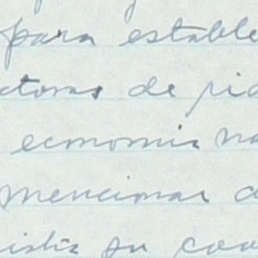 para estable
ctoras de rie
economia na
mencionar a
istia su coo